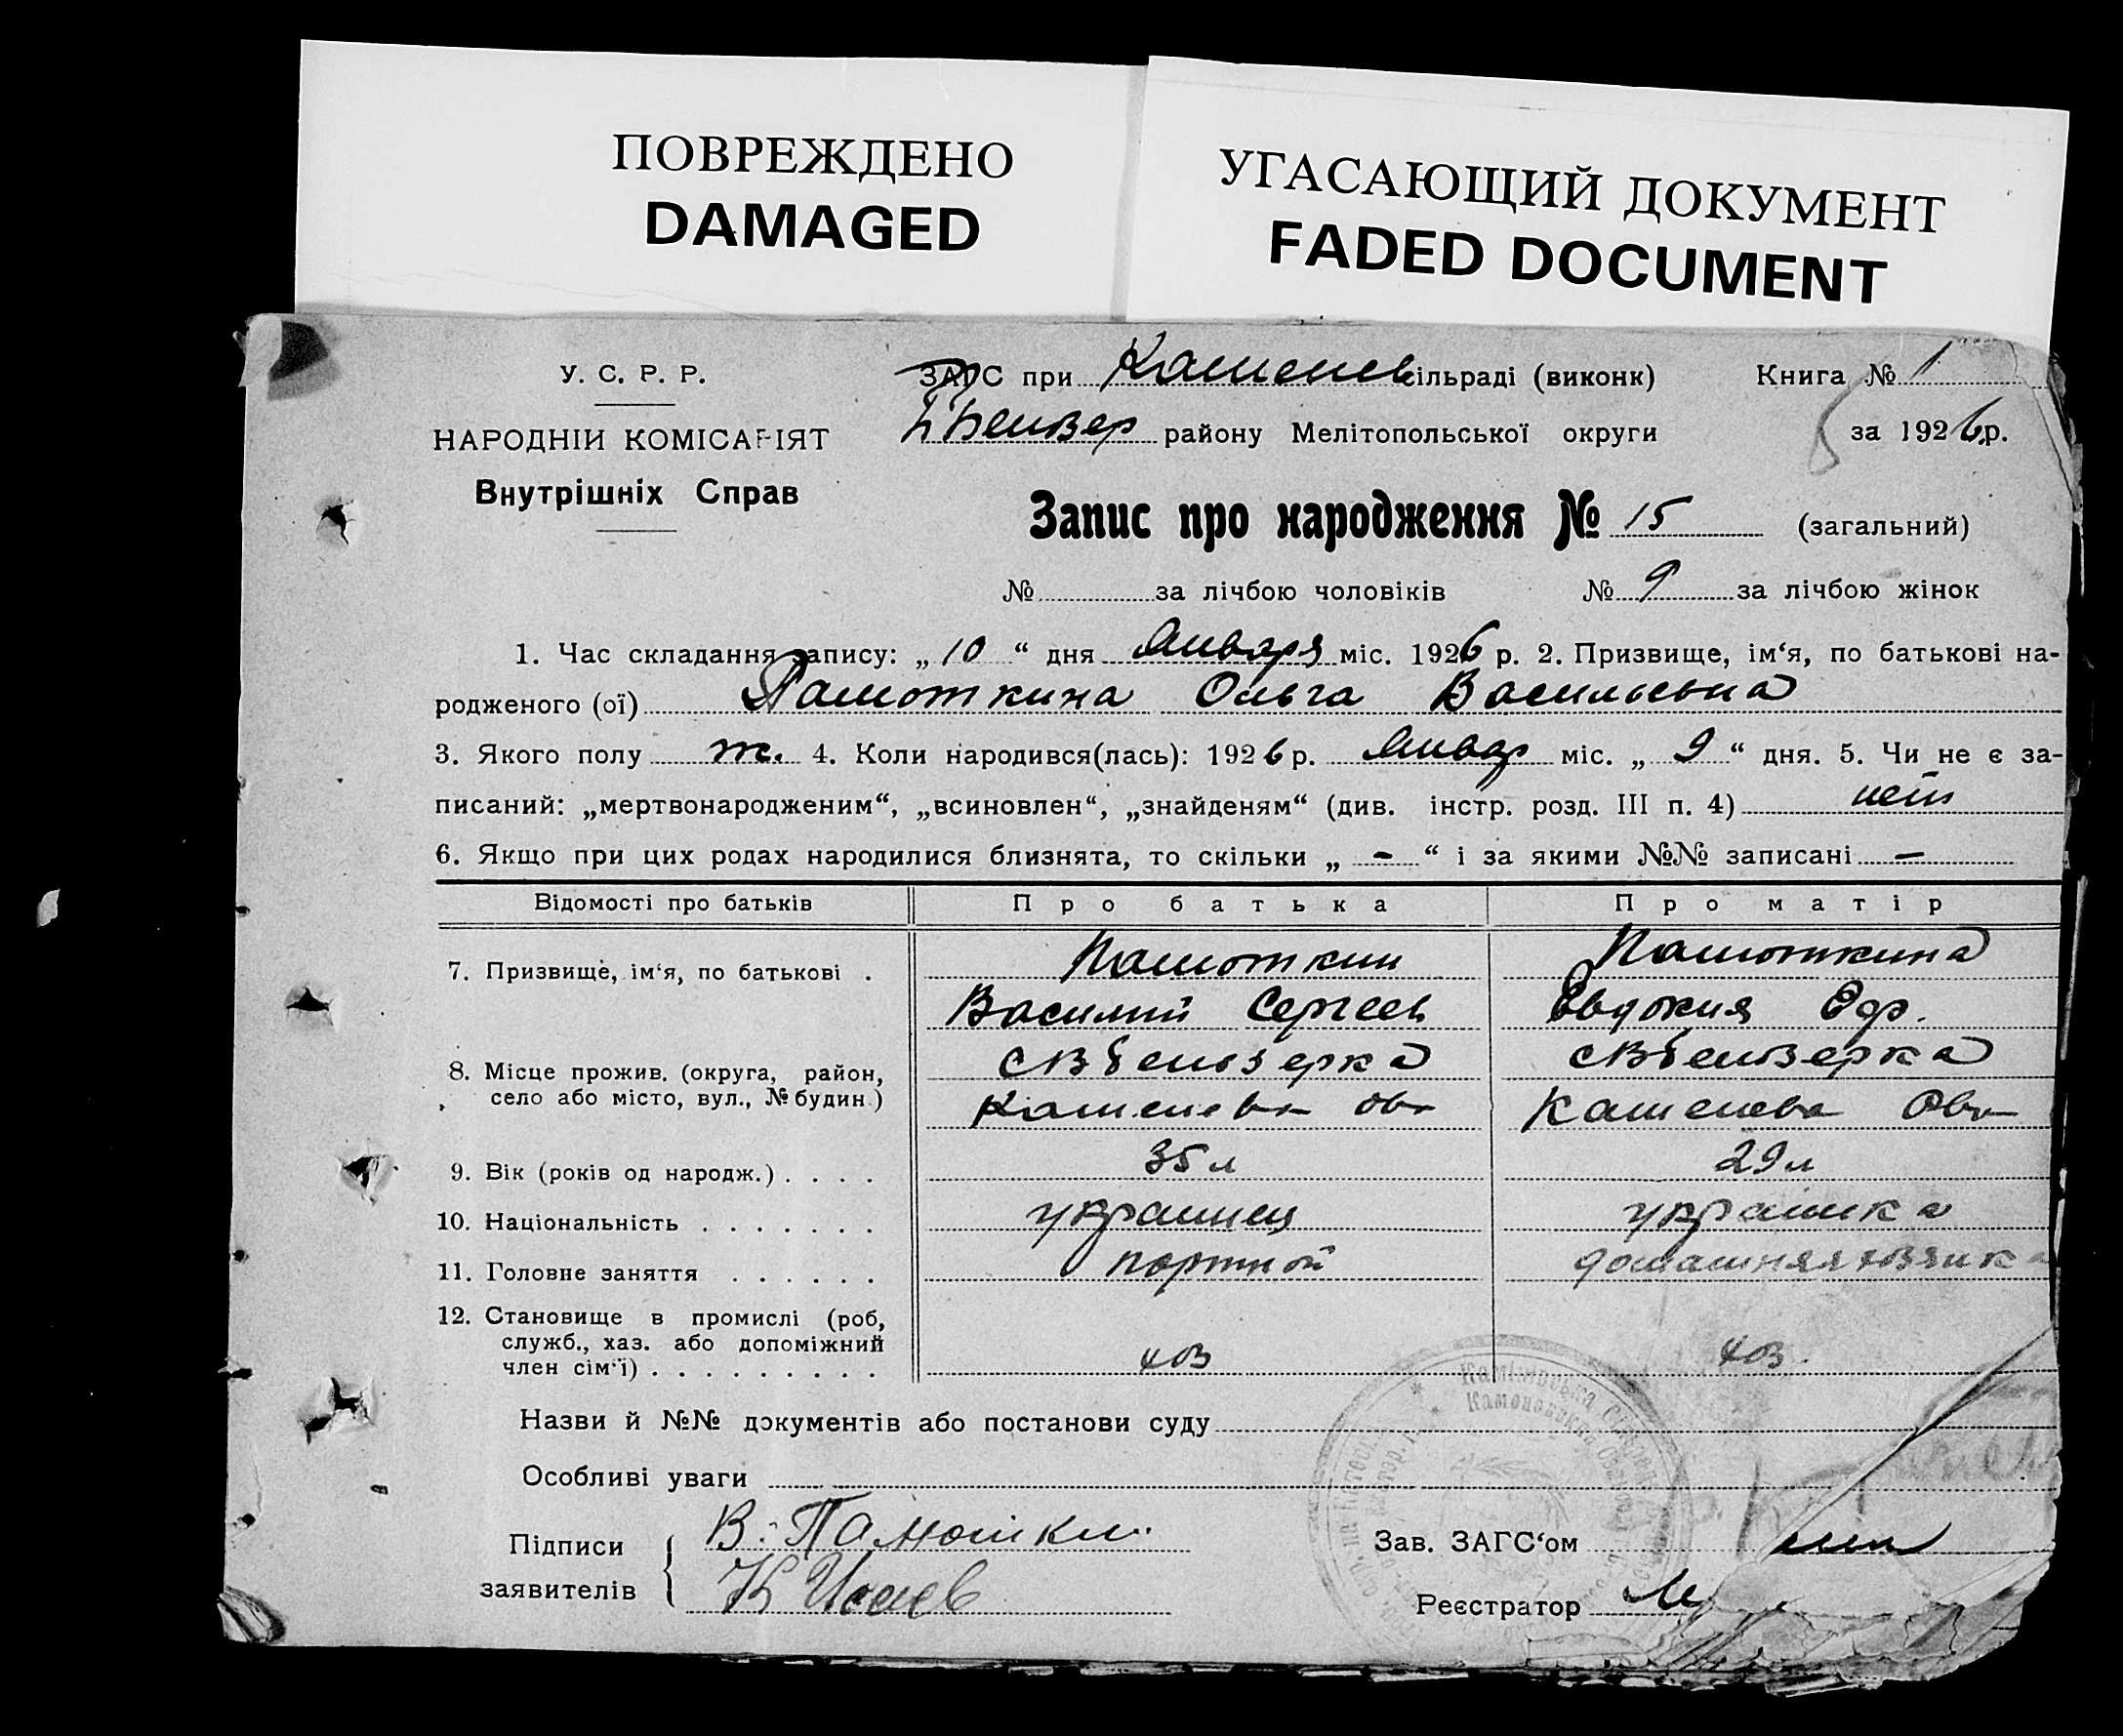 ПОВРЕЖДЕНО
DAMAGED
УГАСАЮЩИЙ ДОКУМЕНТ
FADED DOCUMENT
У. С. Р. Р.
НАРОДНІЙ КОМІСАРІЯТ
Внутрішніх Справ
ЗАГС при Каменев сільраді (виконк) Книга № 1
району Мелітопольської округи за 1926 р.
Запис про народження № 15 (загальний)
№ за лічбою чоловіків № 9 за лічбою жінок
1. Час складання запису: „ 10 “ дня Января міс. 1926 р. 2. Призвище, ім‘я, по батькові на-
родженого (ої) Памоткина Ольга Васильевна
3. Якого полу ж. 4. Коли народився(лась): 1926 р. Январ міс. „ 9 “ дня. 5. Чи не є за-
писаний: „мертвонародженим“, „всиновлен“, „знайденям“ (див. інстр. розд. III п. 4) нет
6. Якщо при цих родах народилися близнята, то скільки „ - “ і за якими №№ записані —
Відомості про батьків Про батька Про матір
7. Призвище, ім‘я, по батькові . Памоткин Памоткина
Василий Сергеев Евдокия Еф.
8. Місце прожив. (округа, район, село або місто, вул., № будин.) СВбелозерка СВбелозерка
35 л 29 л
9. Вік (років од народж.) . . . .
10. Національність . . . . . . . украинец украинка
11. Головне заняття . . . . . . портной домашняя хозяйка
12. Становище в промислі (роб,
служб., хаз. або допоміжний
член сім‘ї) . . . . . . . . . хоз хоз.
Назви й №№ документів або постанови суду
Особливі уваги
Підписи В. Памоткин
заявителів К Исаев
Зав. ЗАГС‘ом
Реєстратор